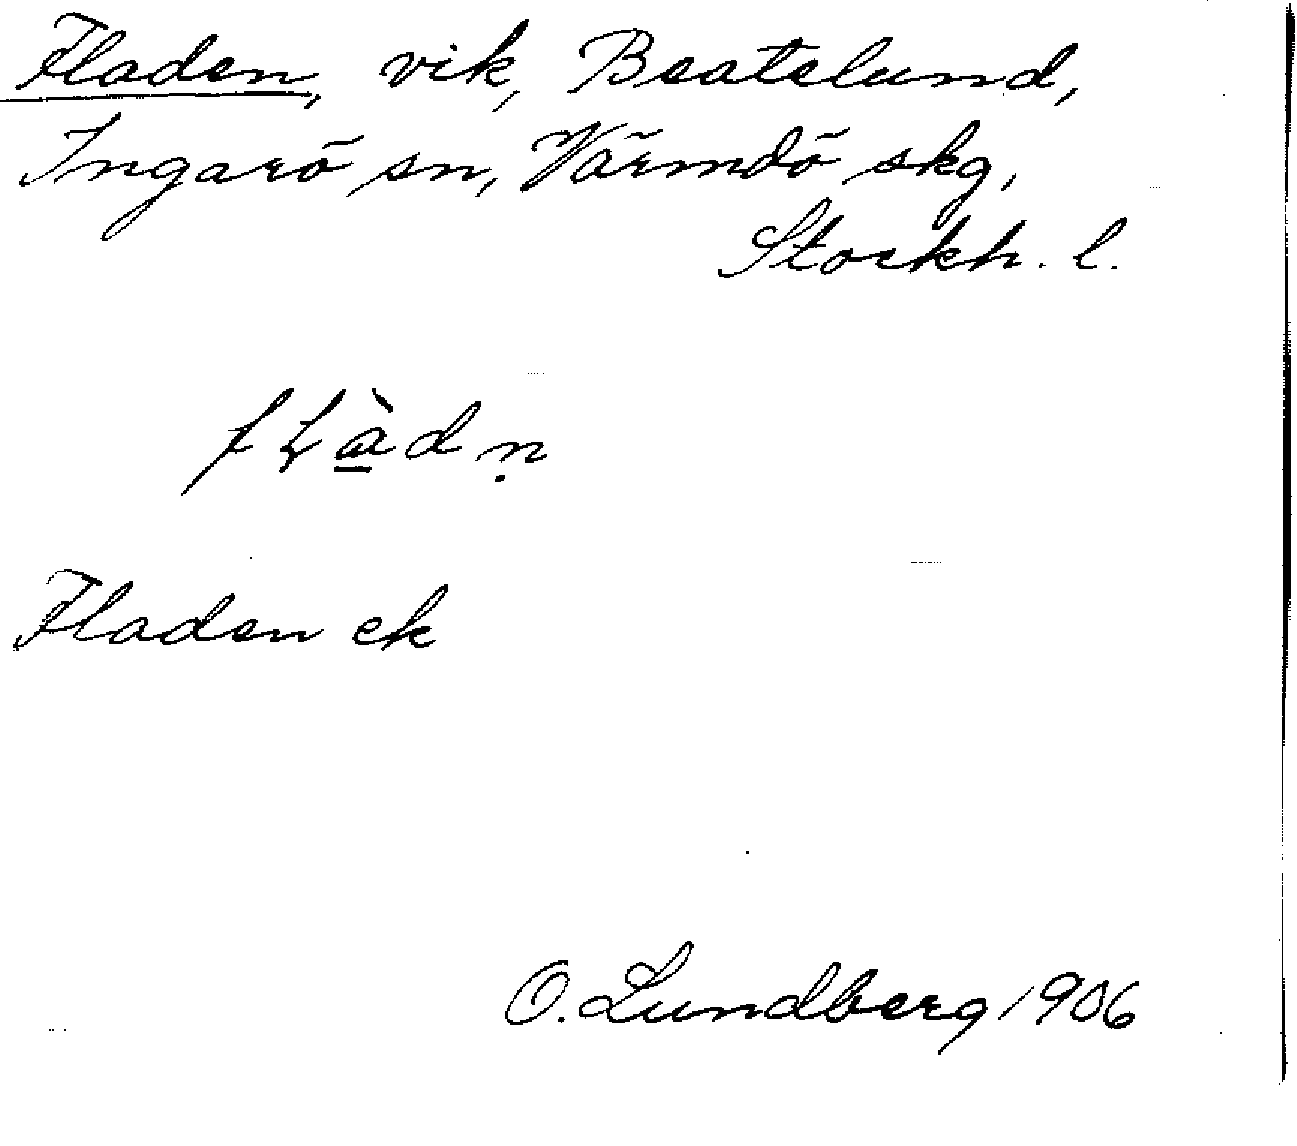 Fladen, vik, Beatelund,
Ingarö sn, Värmdö skg,
Stockh. l.
fłàdṇ
Fladen ek
O. Lundberg 1906